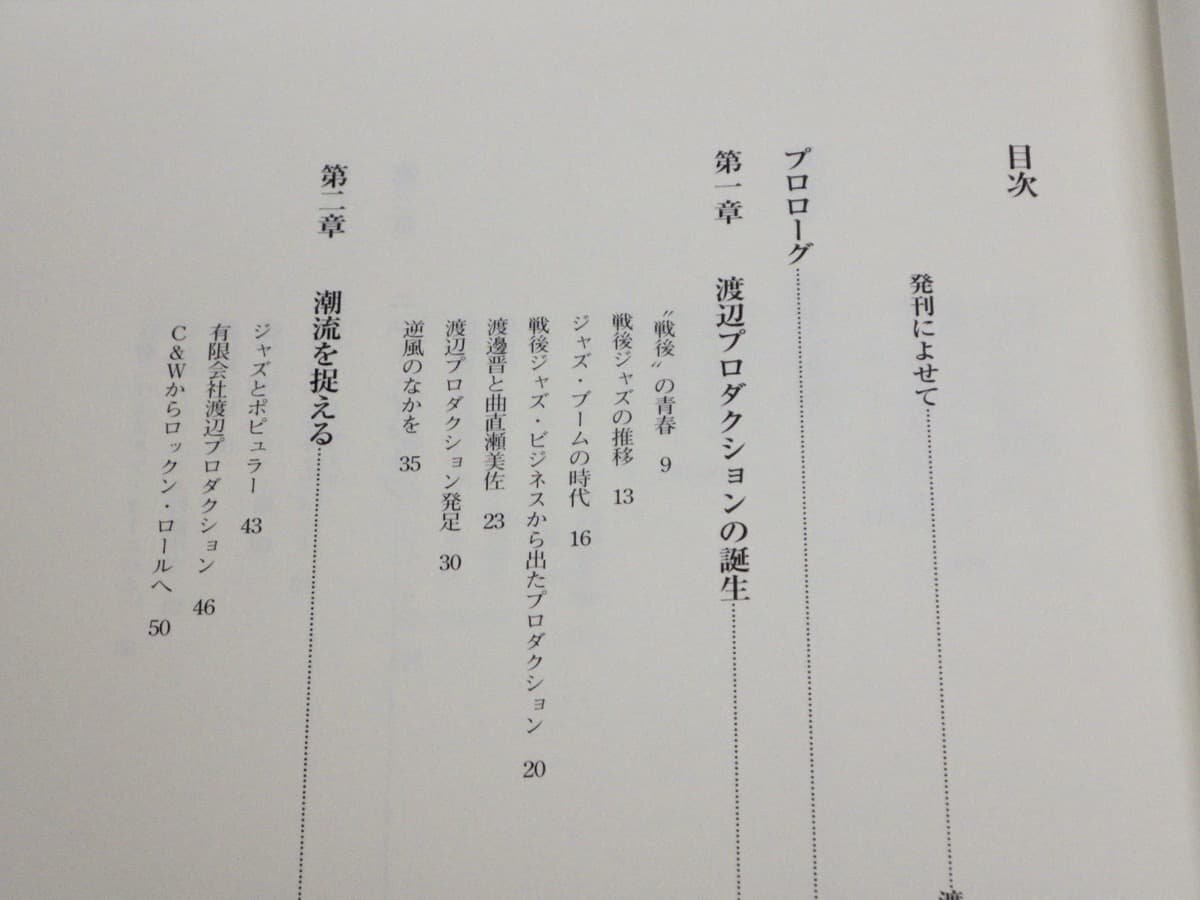 目次
発刊によせて
プロローグ
第一章 渡辺プロダクションの誕生
〝戦後〟の青春 9
戦後ジャズの推移 13
ジャズ・ブームの時代 16
戦後ジャズ・ビジネスから出たプロダクション 20
渡邊晋と曲直瀬美佐 23
渡辺プロダクション発足 30
逆風のなかを 35
第二章 潮流を捉える
ジャズとポピュラー 43
有限会社渡辺プロダクション 46
C&Wからロックン・ロールへ 50